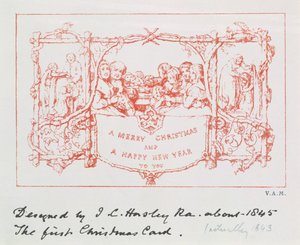 A MERRY CHRISTMAS
AND
A HAPPY NEW YEAR
TO YOU
V.A.M.
Designed by J. C. Horsley Ra. about 1845
The first Christmas Card.
1843